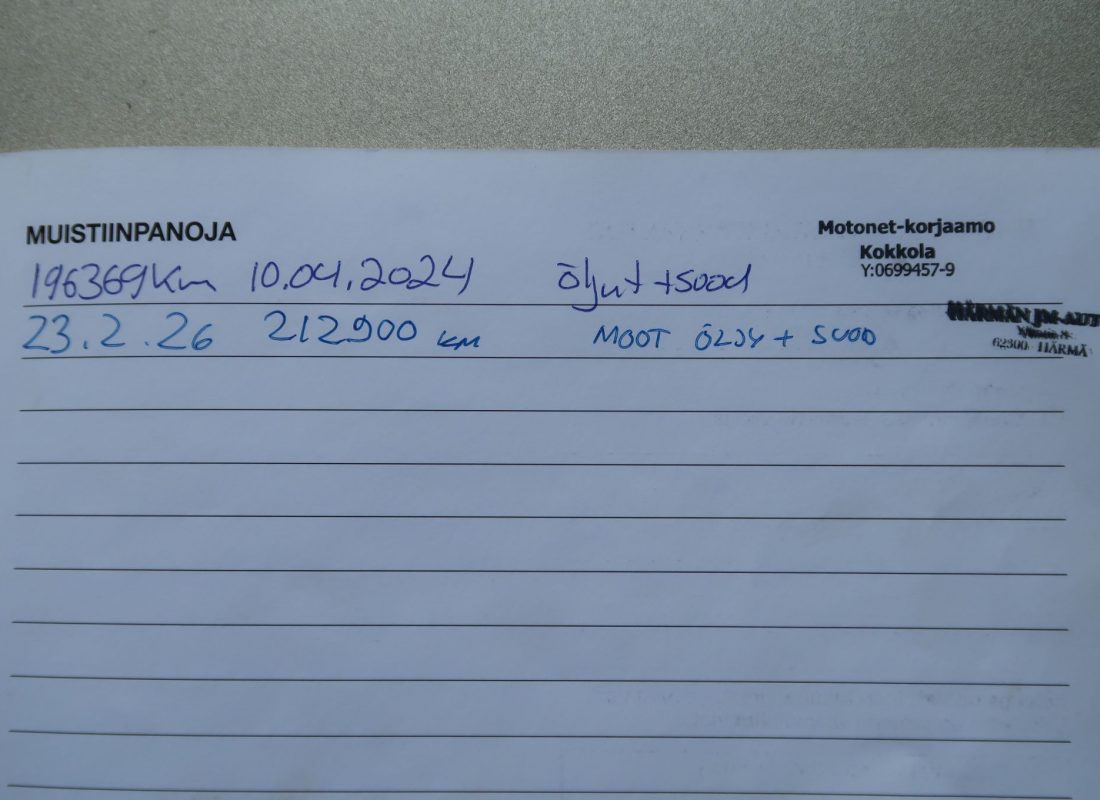 MUISTIINPANOJA
Motonet-korjaamo
Kokkola
Y:0699457-9
196369km 10.04.2024 öljyt + suod
23.2.26 212900 km MOOT ÖLJY + SUOD
HÄRMÄN JM-AUT
62300 HÄRMÄ